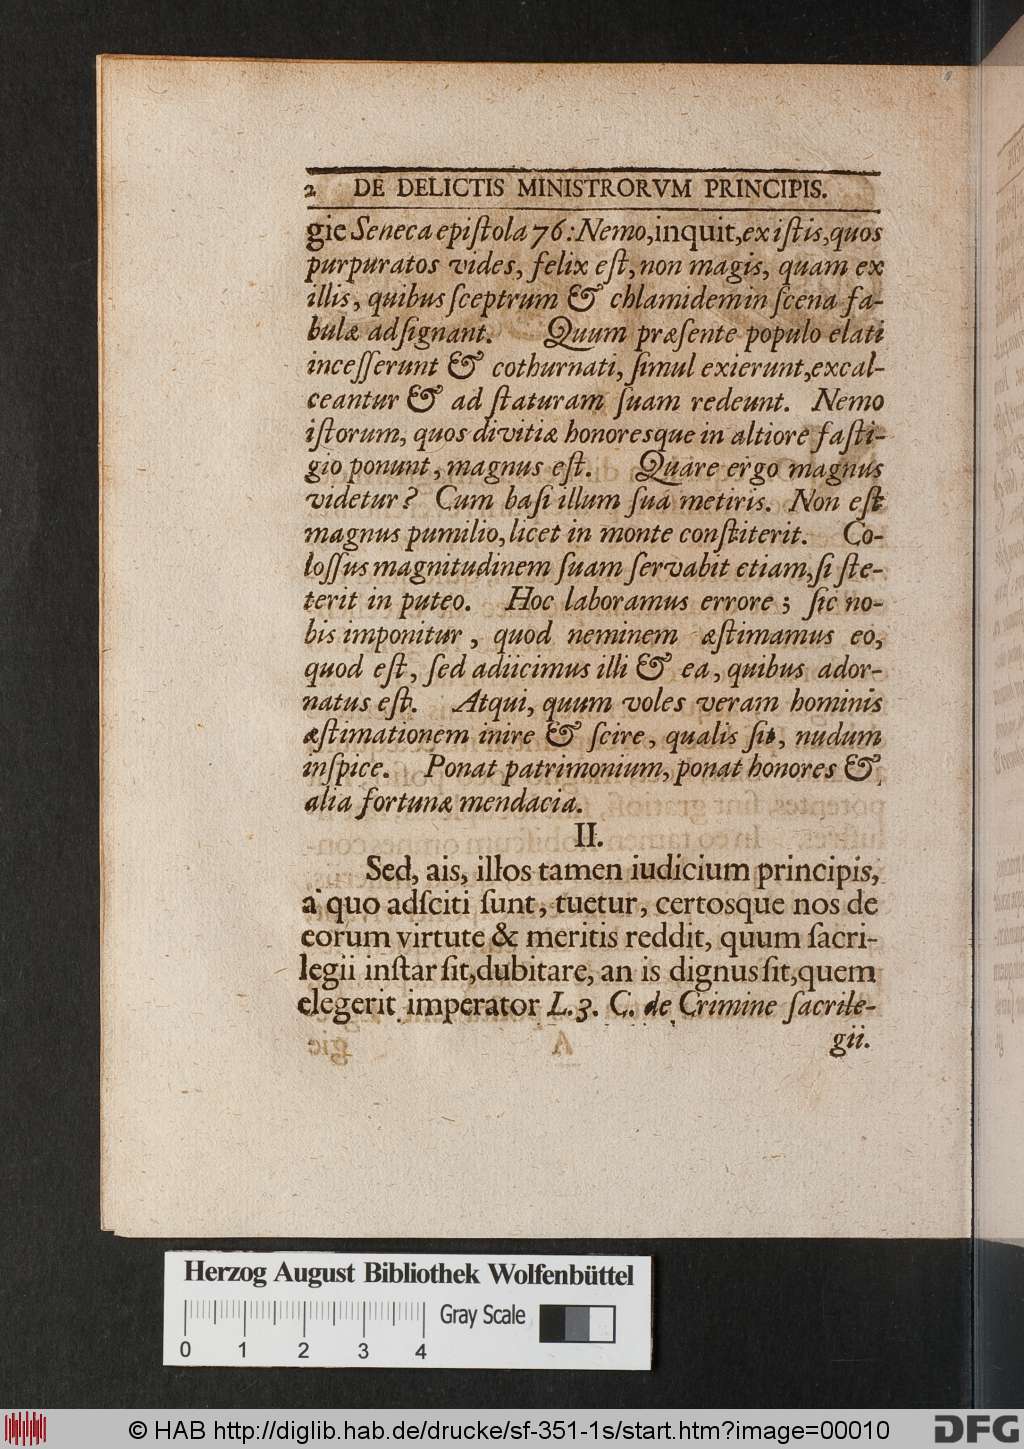 2 DE DELICTIS MINISTRORVM PRINCIPIS.
gie Seneca epiſtola 76: Nemo, inquit, ex iſtis, quos
purpuratos vides, felix eſt, non magis, quam ex
illis, quibus ſceptrum & chlamidem in ſcena fa-
bulæ adſignant. Quum præſente populo elati
inceſſerunt & cothurnati, ſimul exierunt, excal-
ceantur & ad ſtaturam ſuam redeunt. Nemo
iſtorum, quos divitiæ honoresque in altiore faſti-
gio ponunt, magnus eſt. Quare ergo magnus
videtur? Cum baſi illum ſua metiris. Non eſt
magnus pumilio, licet in monte conſtiterit. Co-
loſſus magnitudinem ſuam ſervabit etiam, ſi ſte-
terit in puteo. Hoc laboramus errore; ſic no-
bis imponitur, quod neminem æſtimamus eo,
quod eſt, ſed adiicimus illi & ea, quibus ador-
natus eſt. Atqui, quum voles veram hominis
æſtimationem inire & ſcire, qualis ſit, nudum
inſpice. Ponat patrimonium, ponat honores &
alia fortunæ mendacia.
II.
Sed, ais, illos tamen iudicium principis,
a quo adſciti ſunt, tuetur, certosque nos de
eorum virtute & meritis reddit, quum ſacri-
legii inſtar ſit, dubitare, an is dignus ſit, quem
elegerit imperator L. 3. C. de Crimine ſacrile-
gii.
Herzog August Bibliothek Wolfenbüttel
Gray Scale
0 1 2 3 4
© HAB http://diglib.hab.de/drucke/sf-351-1s/start.htm?image=00010
DFG